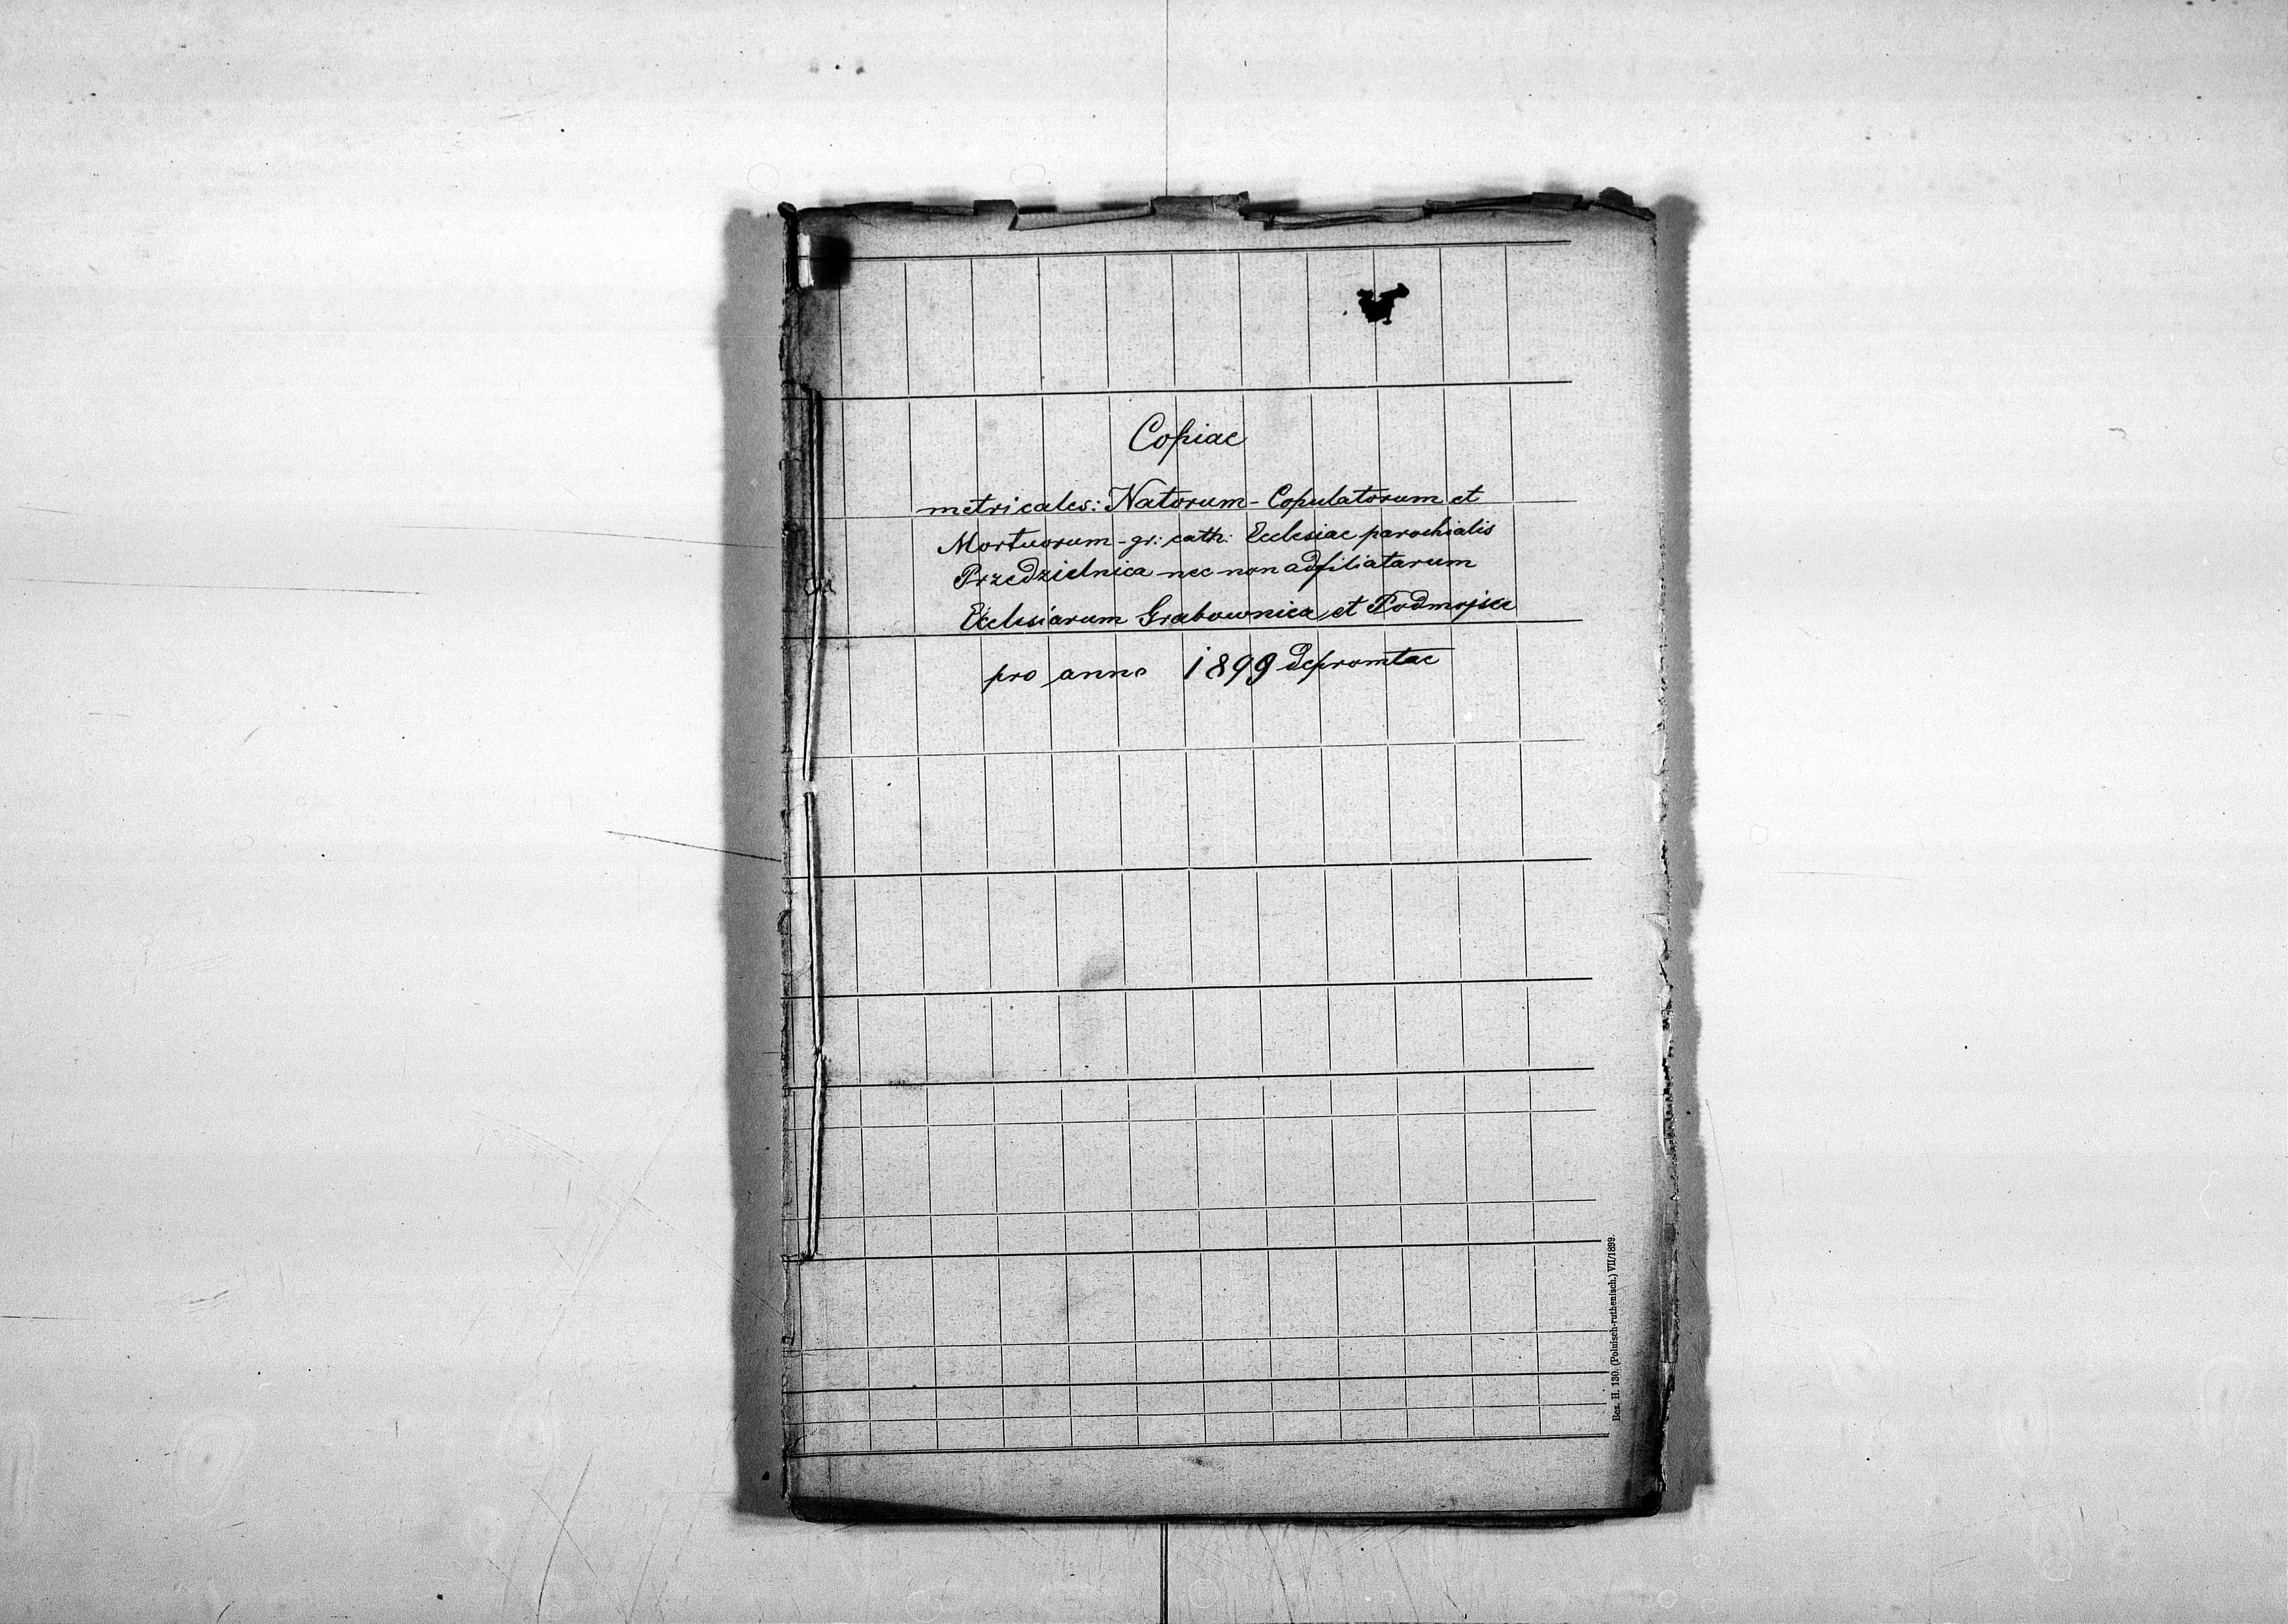 Copiae
metricales: Natorum - Copulatorum et
Mortuorum - gr: cath: Ecclesiae parochialis
Przedzielnica nec non adfiliatarum
Ecclesiarum Grabownica et Podmojsce
pro anno 1899 depromtae
Bez. H. 130. (Polnisch-ruthenisch.) VII/1899.